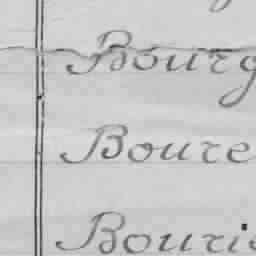 Bourg
Boure
Bouris